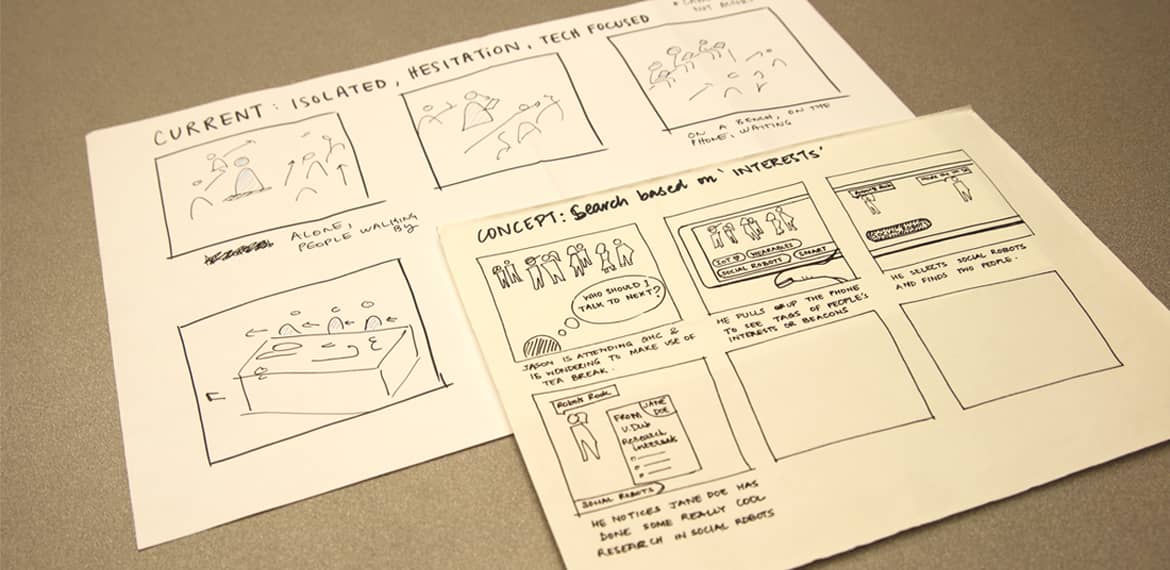 CURRENT: ISOLATED, HESITATION, TECH FOCUSED
NOT
ALONE,
PEOPLE WALKING
BY
ON A BENCH, ON THE
PHONE, WAITING
CONCEPT: Search based on 'INTERESTS'
WHO SHOULD I
TALK TO NEXT?
JASON IS ATTENDING GHC &
IS WONDERING TO MAKE USE OF
TEA BREAK.
IOT
WEARABLES
SOCIAL ROBOTS
SMART
HE PULLS UP THE PHONE
TO SEE TAGS OF PEOPLE'S
INTERESTS OR BEACONS
HE SELECTS SOCIAL ROBOTS
AND FINDS TWO PEOPLE.
Robots Rock
JANE
DOE
FROM
U.Dub
Research
interests
SOCIAL ROBOTS
HE NOTICES JANE DOE HAS
DONE SOME REALLY COOL
RESEARCH IN SOCIAL ROBOTS